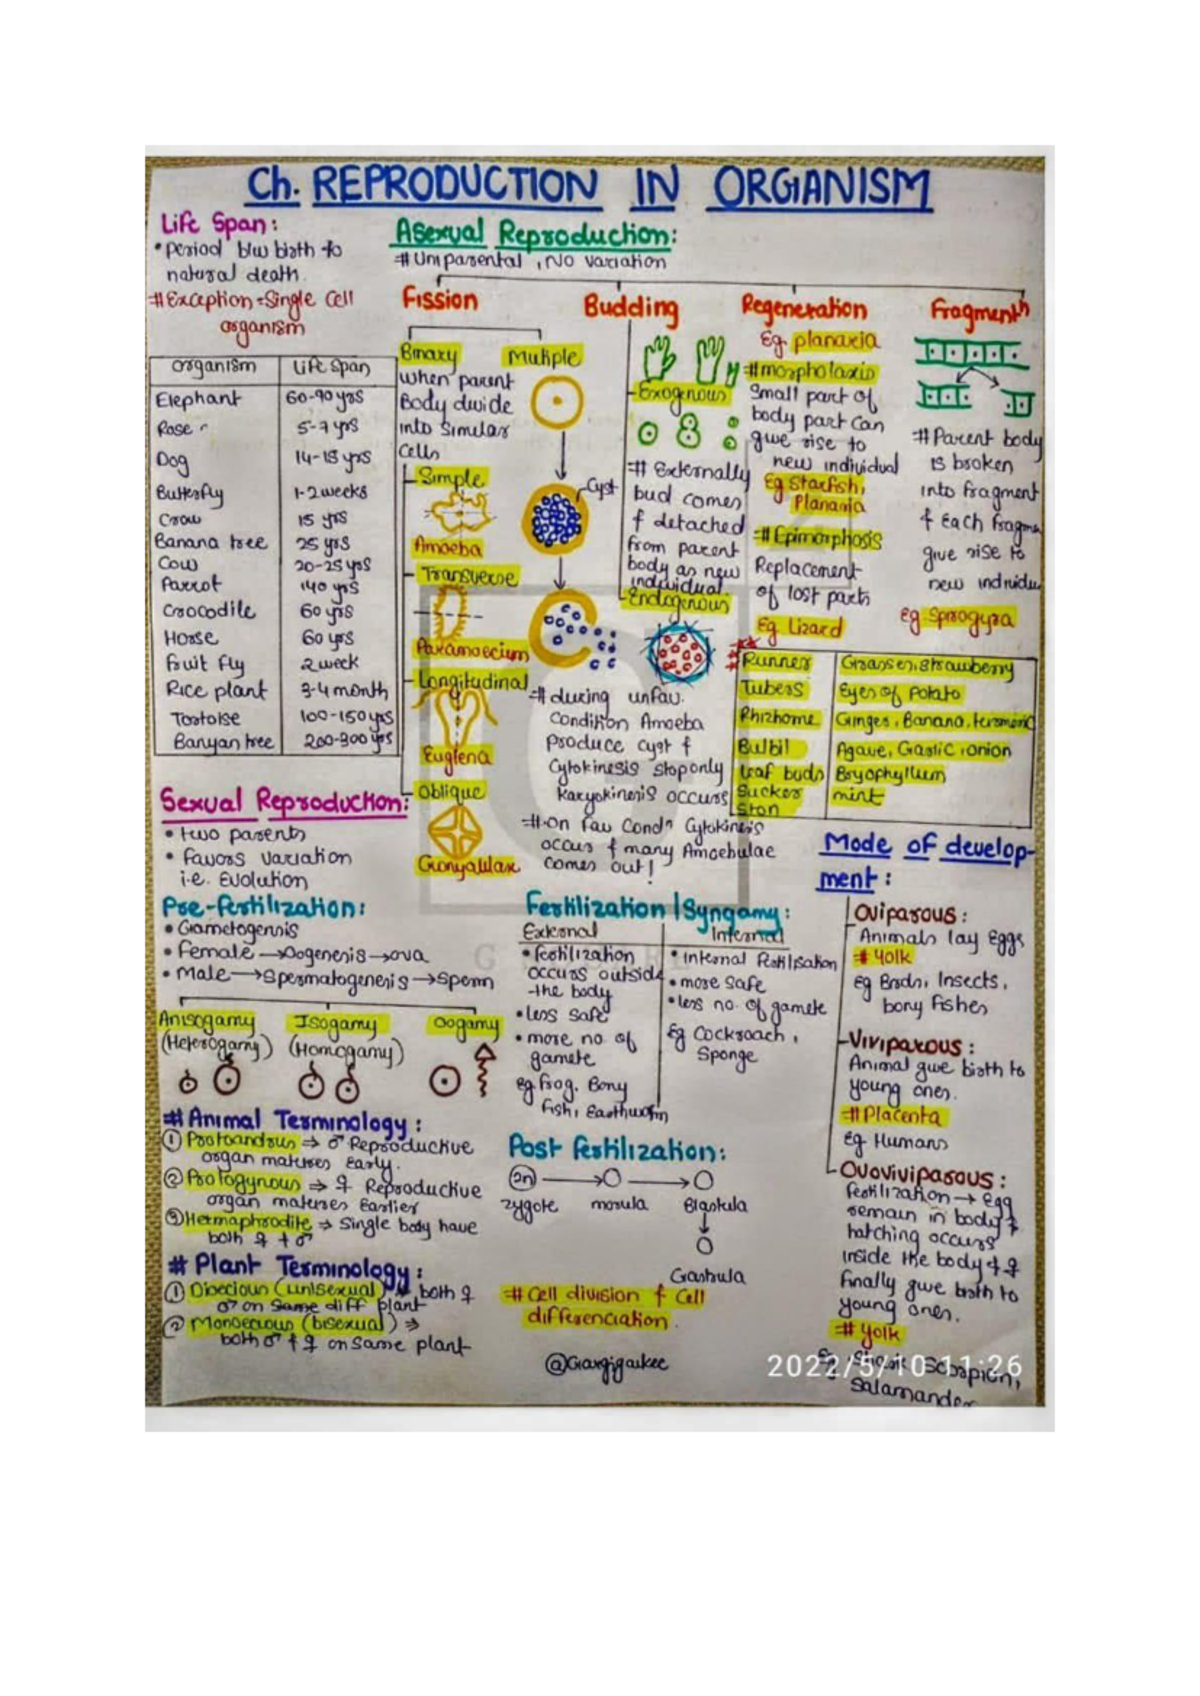 Ch. REPRODUCTION IN ORGANISM
Life Span:
• Period b/w birth to
natural death.
# Exception = Single Cell
organism
Organism | Life Span
Elephant | 60-90 yrs
Rose | 5-7 yrs
Dog | 14-18 yrs
Butterfly | 1-2 weeks
Crow | 15 yrs
Banana tree | 25 yrs
Cow | 20-25 yrs
Parrot | 140 yrs
Crocodile | 60 yrs
Horse | 60 yrs
Fruit fly | 2 week
Rice plant | 3-4 month
Tortoise | 100-150 yrs
Banyan tree | 200-300 yrs
Asexual Reproduction:
# Uniparental, No variation
Fission
Binary
When parent
Body divide
into Similar
Cells
Simple
Amoeba
Transverse
Paramoecium
Longitudinal
Euglena
Oblique
Gonyaulax
Multiple
Cyst
# during unfav.
Condition Amoeba
produce cyst &
Cytokinesis stop only
Karyokinesis occurs
# on fav Condn Cytokinesis
occur & many Amoebulae
Comes out!
Budding
Exogenous
# Externally
bud comes
& detached
from parent
body as new
individual.
Endogenous
Regeneration
Eg planaria
# morpholaxis
Small part of
body part can
give rise to
new individual
Eg Starfish,
Planaria
# Epimorphosis
Replacement
of lost parts
Eg Lizard
Fragmentn
# Parent body
is broken
into fragment
& each fragme
give rise to
new individu
Eg Spirogyra
Runner | Grasses, strawberry
Tubers | Eyes of Potato
Rhizhome | Ginger, Banana, termeric
Bulbil | Agave, Garlic, onion
Leaf buds | Bryophyllum
Sucker | mint
Ston
Sexual Reproduction:
• two parents
• Favors variation
i.e. Evolution
Pre-fertilization:
• Gametogensis
• Female → Oogenesis → ova
• Male → Spermatogenesis → Sperm
Anisogamy
(Heterogamy)
Isogamy
(Homogamy)
Oogamy
# Animal Terminology:
① Protoandrus ⇒ ♂ Reproductive
organ matures Early.
② Protogynous ⇒ ♀ Reproductive
organ matures Earlier
③ Hermaphrodite ⇒ Single body have
both ♀ + ♂
# Plant Terminology:
① Dioecious (unisexual) ⇒ both ♀
♂ on same diff plant
② Monoecious (bisexual) ⇒
both ♂ & ♀ on same plant
Fertilization | Syngamy:
External
• fertilization
occurs outside
the body
• less safe
• more no. of
gamete
eg frog, Bony
fish, Earthworm
Internal
• internal fertilisation
• more safe
• less no. of gamete
Eg Cockroach,
Sponge
Post fertilization:
2n
zygote → morula → Blastula
Gastrula
# Cell division & Cell
differenciation.
@Gargigaukee
Mode of develop-
ment:
Oviparous:
Animals lay Eggs
# Yolk
eg Birds, Insects,
bony fishes
Viviparous:
Animal give birth to
young ones.
# Placenta
Eg Humans
Ovoviviparous:
fertilization → Egg
remain in body &
hatching occurs
inside the body & ♀
finally give birth to
young ones.
# Yolk
Eg Shark Scorpion,
Salamander
2022/5/10 11:26